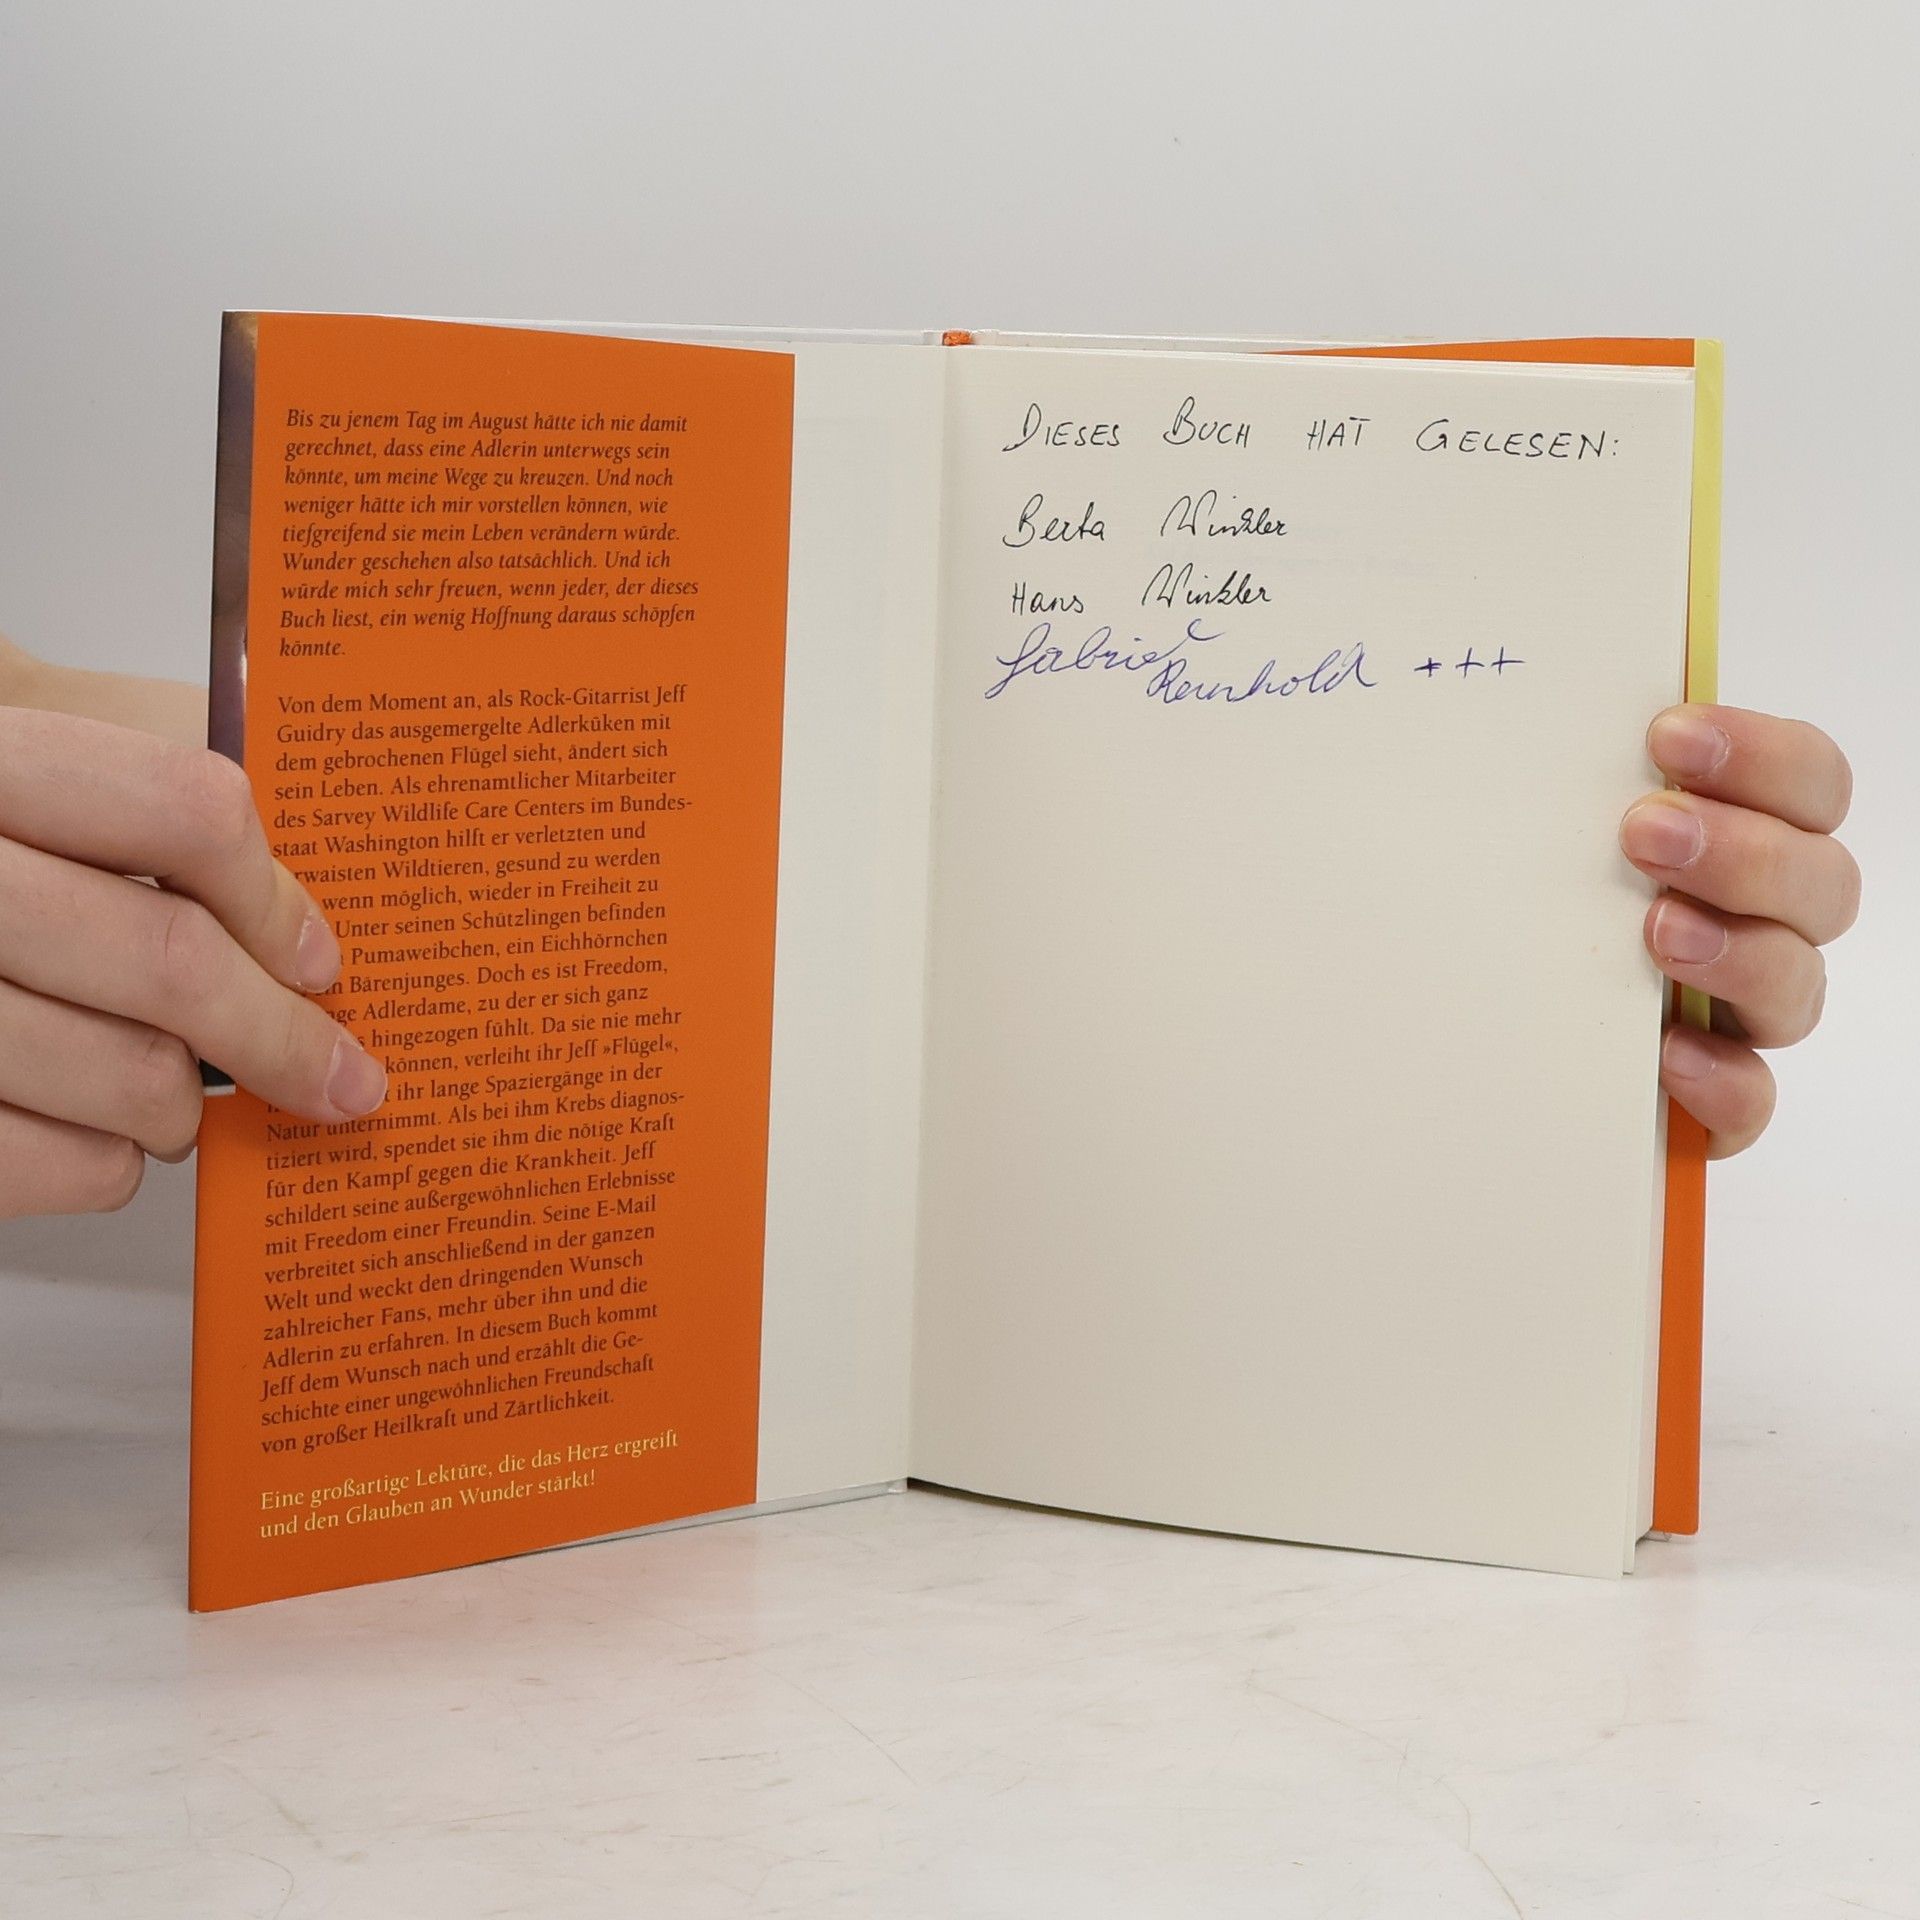 Bis zu jenem Tag im August hätte ich nie damit
gerechnet, dass eine Adlerin unterwegs sein
könnte, um meine Wege zu kreuzen. Und noch
weniger hätte ich mir vorstellen können, wie
tiefgreifend sie mein Leben verändern würde.
Wunder geschehen also tatsächlich. Und ich
würde mich sehr freuen, wenn jeder, der dieses
Buch liest, ein wenig Hoffnung daraus schöpfen
könnte.
Von dem Moment an, als Rock-Gitarrist Jeff
Guidry das ausgemergelte Adlerküken mit
dem gebrochenen Flügel sieht, ändert sich
sein Leben. Als ehrenamtlicher Mitarbeiter
des Sarvey Wildlife Care Centers im Bundes-
staat Washington hilft er verletzten und
rwaisten Wildtieren, gesund zu werden
wenn möglich, wieder in Freiheit zu
Unter seinen Schützlingen befinden
Pumaweibchen, ein Eichhörnchen
Bärenjunges. Doch es ist Freedom,
Adlerdame, zu der er sich ganz
hingezogen fühlt. Da sie nie mehr
können, verleiht ihr Jeff »Flügel«,
ihr lange Spaziergänge in der
Natur unternimmt. Als bei ihm Krebs diagnos-
tiziert wird, spendet sie ihm die nötige Kraft
für den Kampf gegen die Krankheit. Jeff
schildert seine außergewöhnlichen Erlebnisse
mit Freedom einer Freundin. Seine E-Mail
verbreitet sich anschließend in der ganzen
Welt und weckt den dringenden Wunsch
zahlreicher Fans, mehr über ihn und die
Adlerin zu erfahren. In diesem Buch kommt
Jeff dem Wunsch nach und erzählt die Ge-
schichte einer ungewöhnlichen Freundschaft
von großer Heilkraft und Zärtlichkeit.
Eine großartige Lektüre, die das Herz ergreift
und den Glauben an Wunder stärkt!
DIESES BUCH HAT GELESEN:
Berta Winkler
Hans Winkler
Gabriele
Reinhold +++